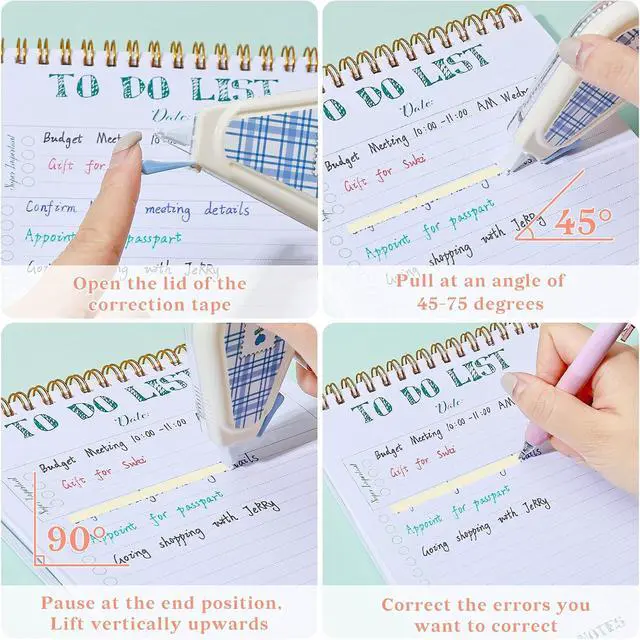 TO DO LIST
Date:
Super Important
Budget Meet 10
Gift for
Confirm meeting details
Appoint passpart
Going shopping with JeRRy
Open the lid of the
correction tape
TO DO LIST
Date:
Budget Meeting 10:00-11:00 AM Wedn
Gift for Suki
Appoint for passpart
Going shopping with JeRRy
45°
Pull at an angle of
45-75 degrees
TO DO LIST
Date:
Super Important
Budget Meeting 10:00-11:00
Gift for Suki
ails
Appoint for passpart
Going shopping with JeRRy
90°
Pause at the end position,
Lift vertically upwards
TO DO LIST
Date:
Super Important
Budget Meeting 10:00-11:00 AM
Gift for Suki
ails
Appoint for passpart
Going shopping with JeRRy
NOTES
Correct the errors you
want to correct